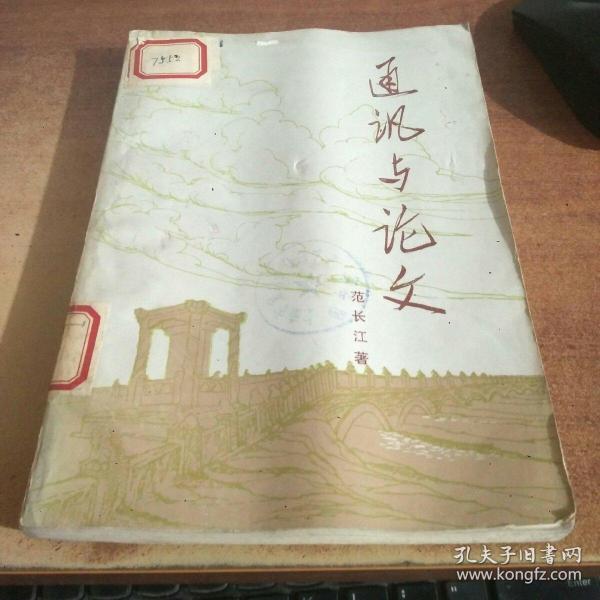 通讯与论文
范长江著
孔夫子旧书网
www.kongfz.com
Enter